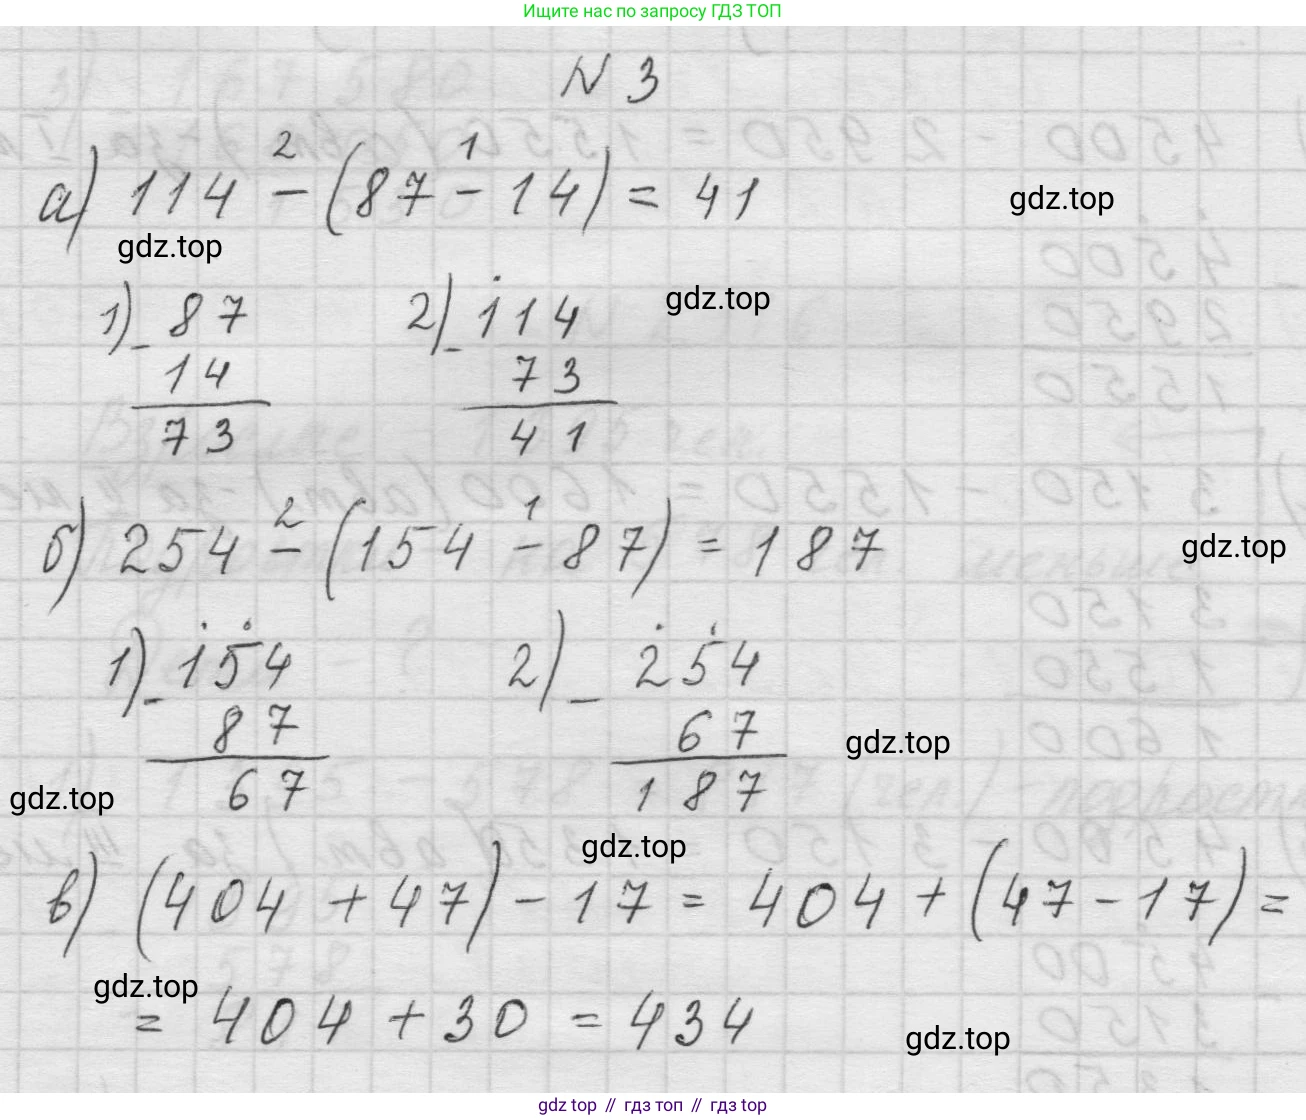 Ищите нас по запросу ГДЗ ТОП
N 3
2 1
а) 114 - (87 - 14) = 41
gdz.top
gdz.top
gdz.top
1) - 87
14
73
2) - 114
73
41
2 1
б) 254 - (154 - 87) = 187
gdz.top
1) - 154
87
67
2) - 254
67
187
gdz.top
gdz.top
gdz.top
в) (404 + 47) - 17 = 404 + (47 - 17) =
gdz.top
= 404 + 30 = 434
gdz.top
gdz top // гдз топ // gdz top